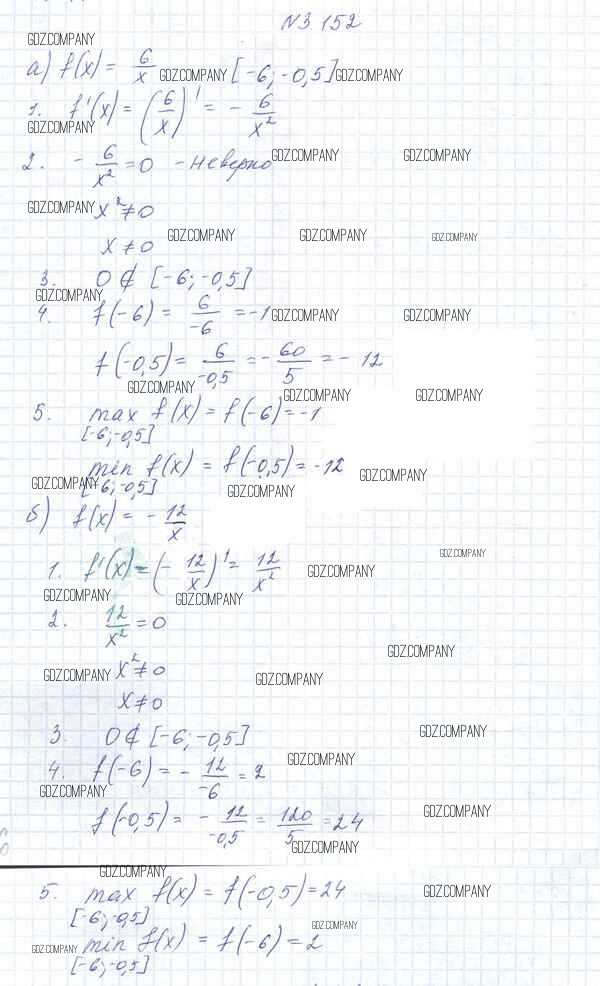 N3.152
GDZ.COMPANY
а) f(x) = 6/x GDZ.COMPANY [-6; -0,5] GDZ.COMPANY
1. f'(x) = (6/x)' = - 6/x²
GDZ.COMPANY
2. - 6/x² = 0 - неверно GDZ.COMPANY GDZ.COMPANY
GDZ.COMPANY x² ≠ 0
x ≠ 0 GDZ.COMPANY GDZ.COMPANY GDZ.COMPANY
3. 0 ∉ [-6; -0,5]
GDZ.COMPANY
4. f(-6) = 6/-6 = -1 GDZ.COMPANY GDZ.COMPANY
f(-0,5) = 6/-0,5 = - 60/5 = - 12
GDZ.COMPANY GDZ.COMPANY GDZ.COMPANY
5. max f(x) = f(-6) = -1
[-6; -0,5]
min f(x) = f(-0,5) = -12 GDZ.COMPANY
GDZ.COMPANY [-6; -0,5] GDZ.COMPANY
б) f(x) = - 12/x
GDZ.COMPANY
1. f'(x) = (- 12/x)' = 12/x² GDZ.COMPANY
GDZ.COMPANY GDZ.COMPANY
2. 12/x² = 0
GDZ.COMPANY
GDZ.COMPANY x² ≠ 0 GDZ.COMPANY
x ≠ 0
3. 0 ∉ [-6; -0,5] GDZ.COMPANY
4. f(-6) = - 12/-6 = 2 GDZ.COMPANY
GDZ.COMPANY
f(-0,5) = - 12/-0,5 = 120/5 = 24 GDZ.COMPANY
GDZ.COMPANY
GDZ.COMPANY
5. max f(x) = f(-0,5) = 24 GDZ.COMPANY
[-6; -0,5] GDZ.COMPANY
GDZ.COMPANY min f(x) = f(-6) = 2
[-6; -0,5]